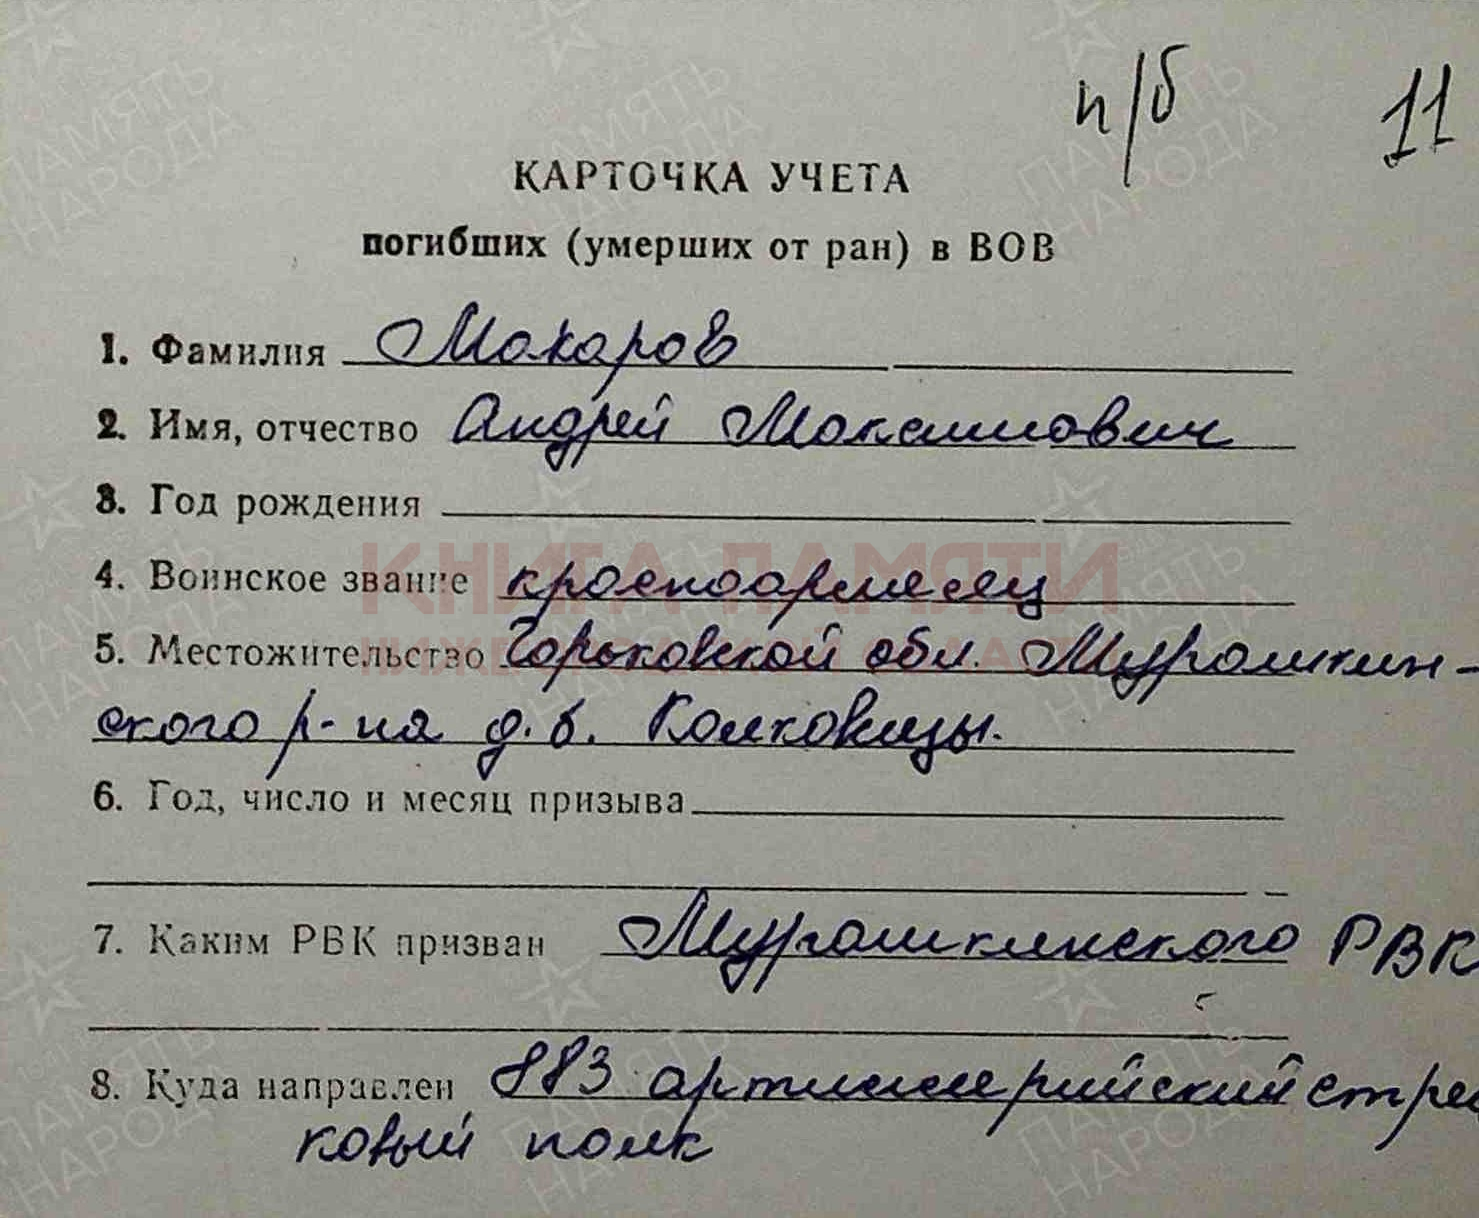 п/б 11
КАРТОЧКА УЧЕТА
погибших (умерших от ран) в ВОВ
1. Фамилия Макаров
2. Имя, отчество Андрей Максимович
3. Год рождения
КНИГА ПАМЯТИ
4. Воинское звание красноармеец
НИЖЕГОРОДСКОЙ ОБЛАСТИ
5. Местожительство Горьковской обл. Мурашкин-
ского р-на д. б. Колковицы.
6. Год, число и месяц призыва
7. Каким РВК призван Мурашкинского РВК
8. Куда направлен 883 артиллерийский стрел
ковый полк
ПАМЯТЬ НАРОДА